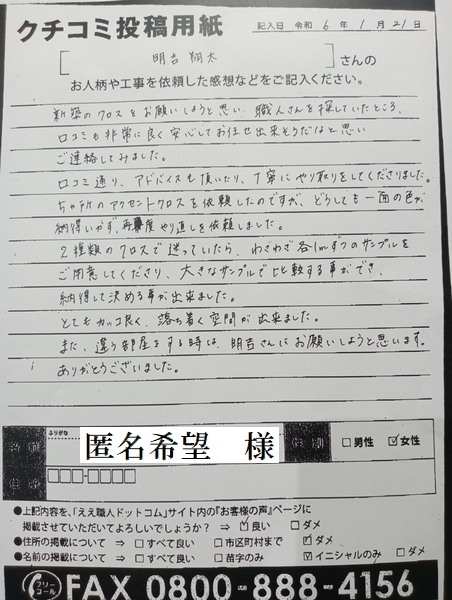 クチコミ投稿用紙
記入日 令和 6 年 1 月 21 日
明吉 翔太 さんの
お人柄や工事を依頼した感想などをご記入ください。
新築のクロスをお願いしようと思い、職人さんを探していたところ、
口コミも非常に良く安心してお任せ出来そうだなと思い
ご連絡してみました。
口コミ通り、アドバイスも頂いたり、丁寧にやり取りをしてくださりました。
5ヶ所のアクセントクロスを依頼したのですが、どうしても一面の色が
納得いかず、再度やり直しを依頼しました。
2種類のクロスで迷っていたら、わざわざ各1mずつのサンプルを
ご用意してくださり、大きなサンプルで比較する事ができ、
納得して決める事が出来ました。
とてもカッコ良く、落ち着く空間が出来ました。
また、違う部屋をする時は、明吉さんにお願いしようと思います。
ありがとうございました。
ふりがな
名前 匿名希望 様 性別 □男性 ☑女性
住所 □□□-□□□□
●上記内容を、「ええ職人ドットコム」サイト内の『お客様の声』ページに
掲載させていただいてよろしいでしょうか？ ⇒ ☑良い □ダメ
●住所の掲載について ⇒ □すべて良い □市区町村まで ☑ダメ
●名前の掲載について ⇒ □すべて良い □苗字のみ ☑イニシャルのみ □ダメ
フリーコール FAX 0800-888-4156